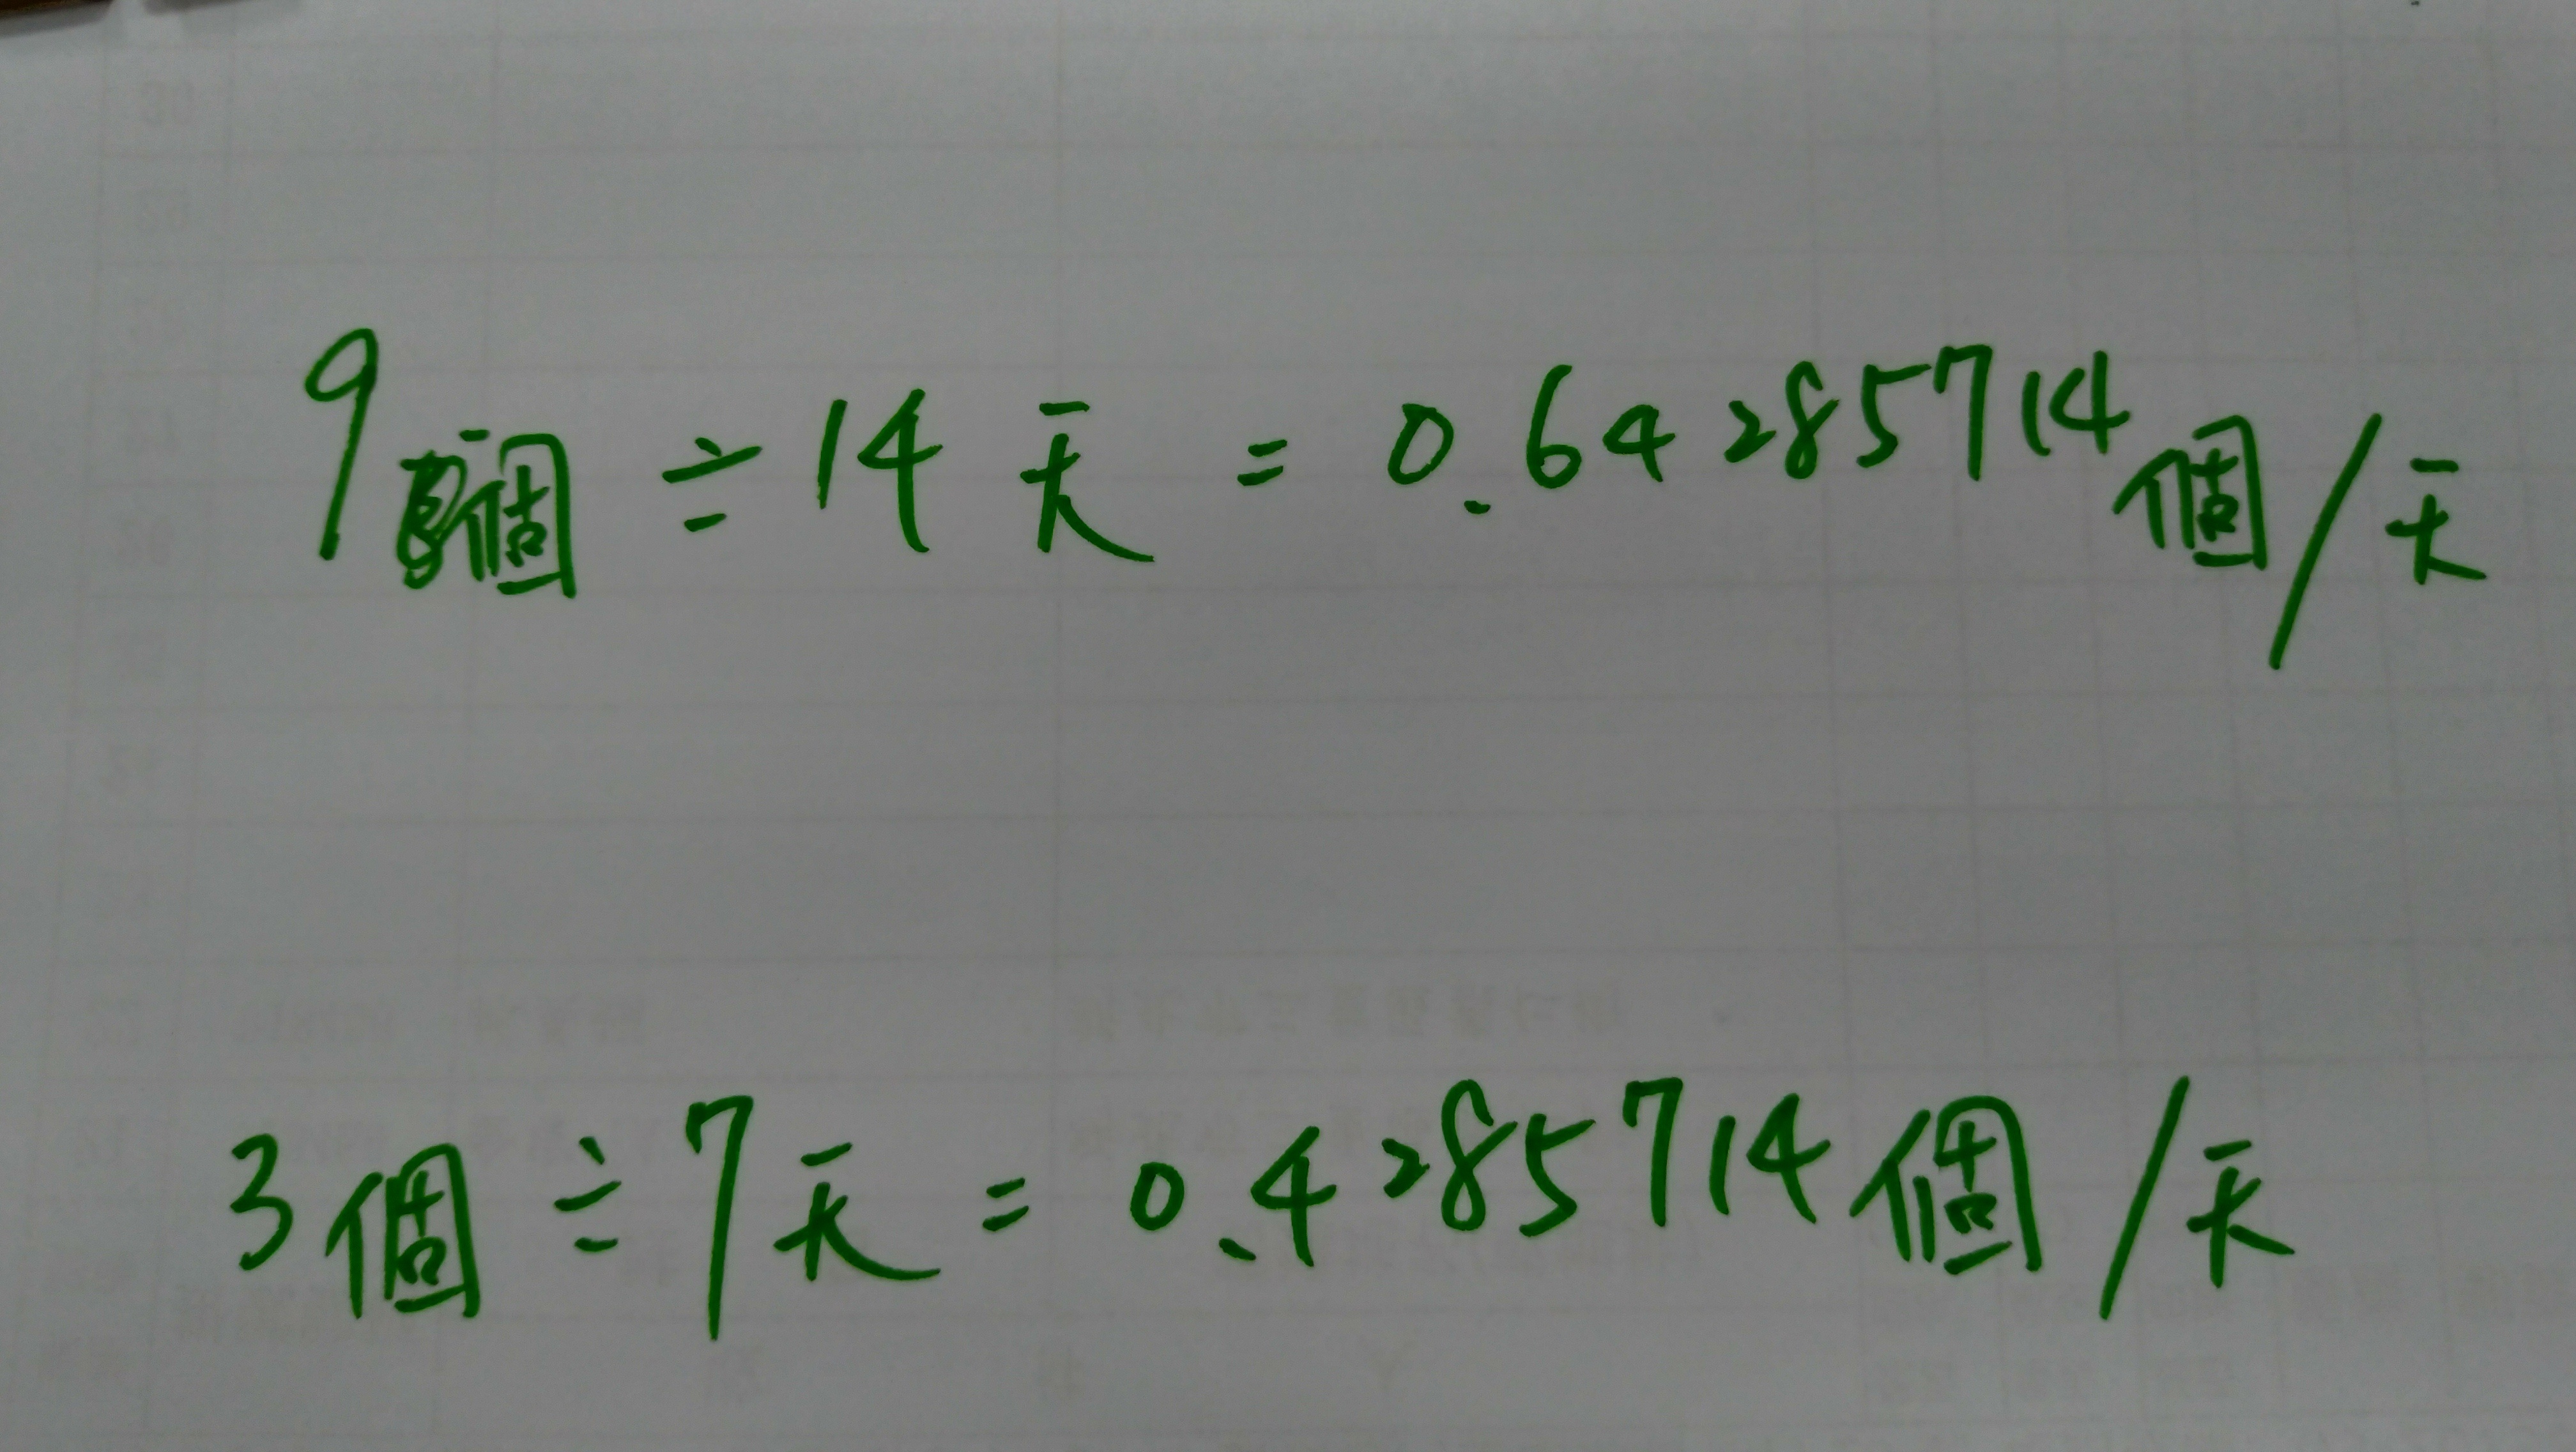 9個÷14天=0.64285714個/天
3個÷7天=0.4285714個/天